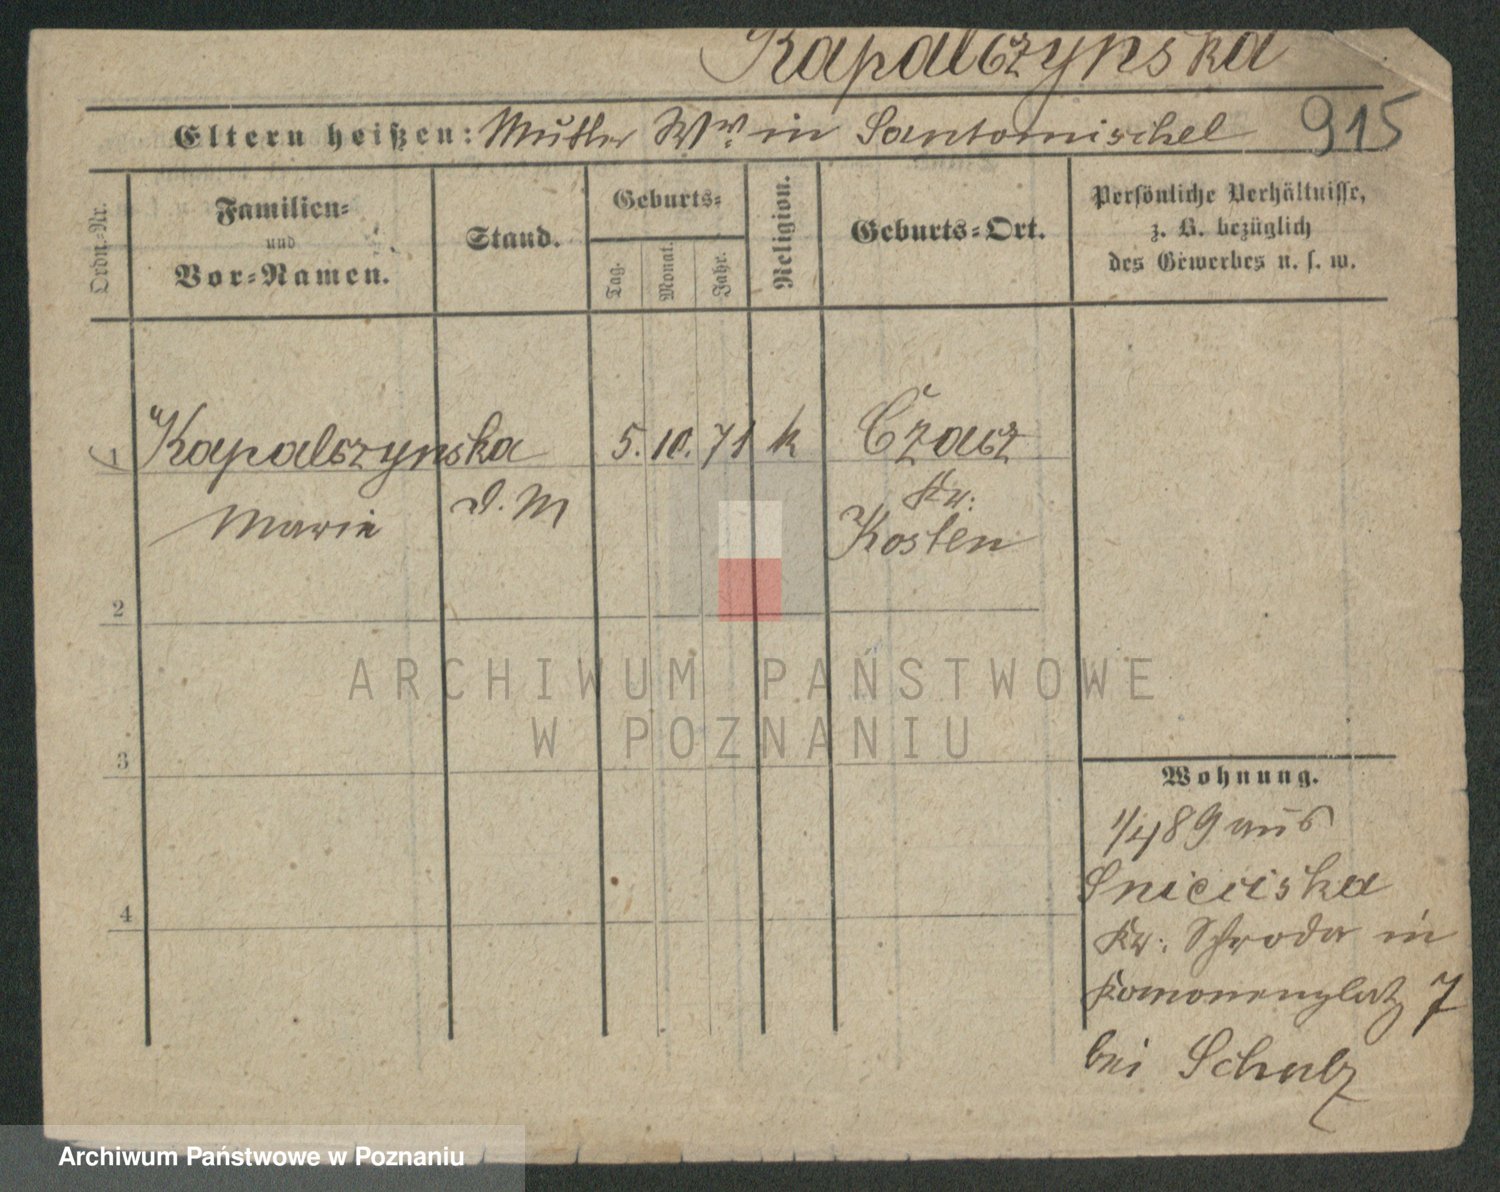 Kapalczynska
915
Eltern heißen: Mutter Ww. in Santomischel
Ordn.-Nr.
Familien-
und
Vor-Namen.
Stand.
Geburts-
Tag.
Monat.
Jahr.
Religion.
Geburts-Ort.
Persönliche Verhältnisse,
z. B. bezüglich
des Gewerbes u. s. w.
1 Kapalczynska 5. 10. 71 k Czacz
Marie D. M Kr.
Kosten
2
3
4
ARCHIWUM PAŃSTWOWE
W POZNANIU
Wohnung.
1/4 89 aus
Kr. Schroda in
7
bei Schulz
Archiwum Państwowe w Poznaniu